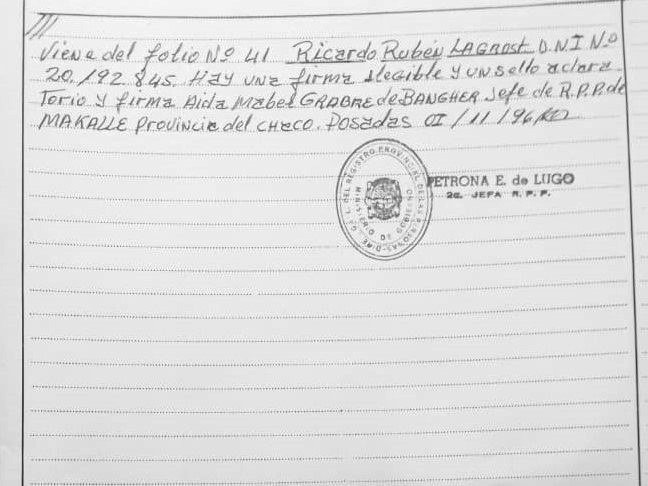 ///
Viene del folio Nº 41 Ricardo Rubén LAGNOST D.N.I Nº
20.192.845. Hay una firma ilegible y un sello aclara
Torio y firma Aida Mabel GRABRE de BANGHER Jefe de R.P.P. de
MAKALLE Provincia del CHACO. Posadas 01/11/96
PETRONA E. de LUGO
2a. JEFA R. P. P.
MINISTERIO DE GOBIERNO